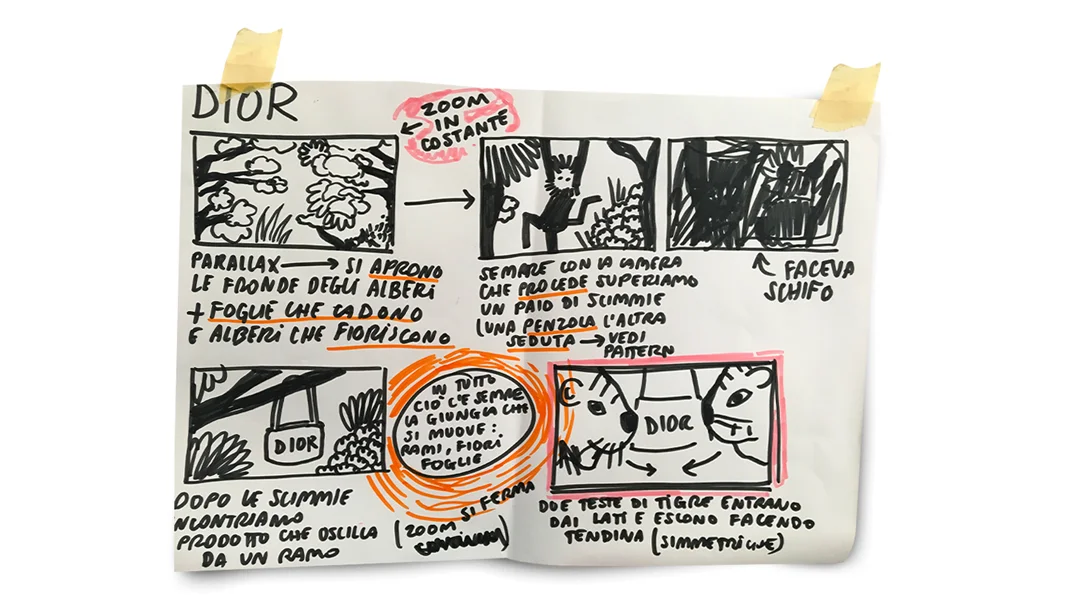 DIOR
ZOOM
IN
COSTANTE
PARALLAX → SI APRONO
LE FRONDE DEGLI ALBERI
+ FOGLIE CHE CADONO
E ALBERI CHE FIORISCONO
SEMPRE CON LA CAMERA
CHE PROCEDE SUPERIAMO
UN PAIO DI SCIMMIE
(UNA PENZOLA L'ALTRA
SEDUTA → VEDI
PATTERN
FACEVA
SCHIFO
DIOR
IN TUTTO
CIÒ C'È SEMPRE
LA GIUNGLA CHE
SI MUOVE:
RAMI, FIORI
FOGLIE
DIOR
DOPO LE SCIMMIE
NCONTRIAMO
PRODOTTO CHE OSCILLA
DA UN RAMO
(ZOOM SI FERMA
DUE TESTE DI TIGRE ENTRANO
DAI LATI E ESCONO FACENDO
TENDINA (SIMMETRICHE)